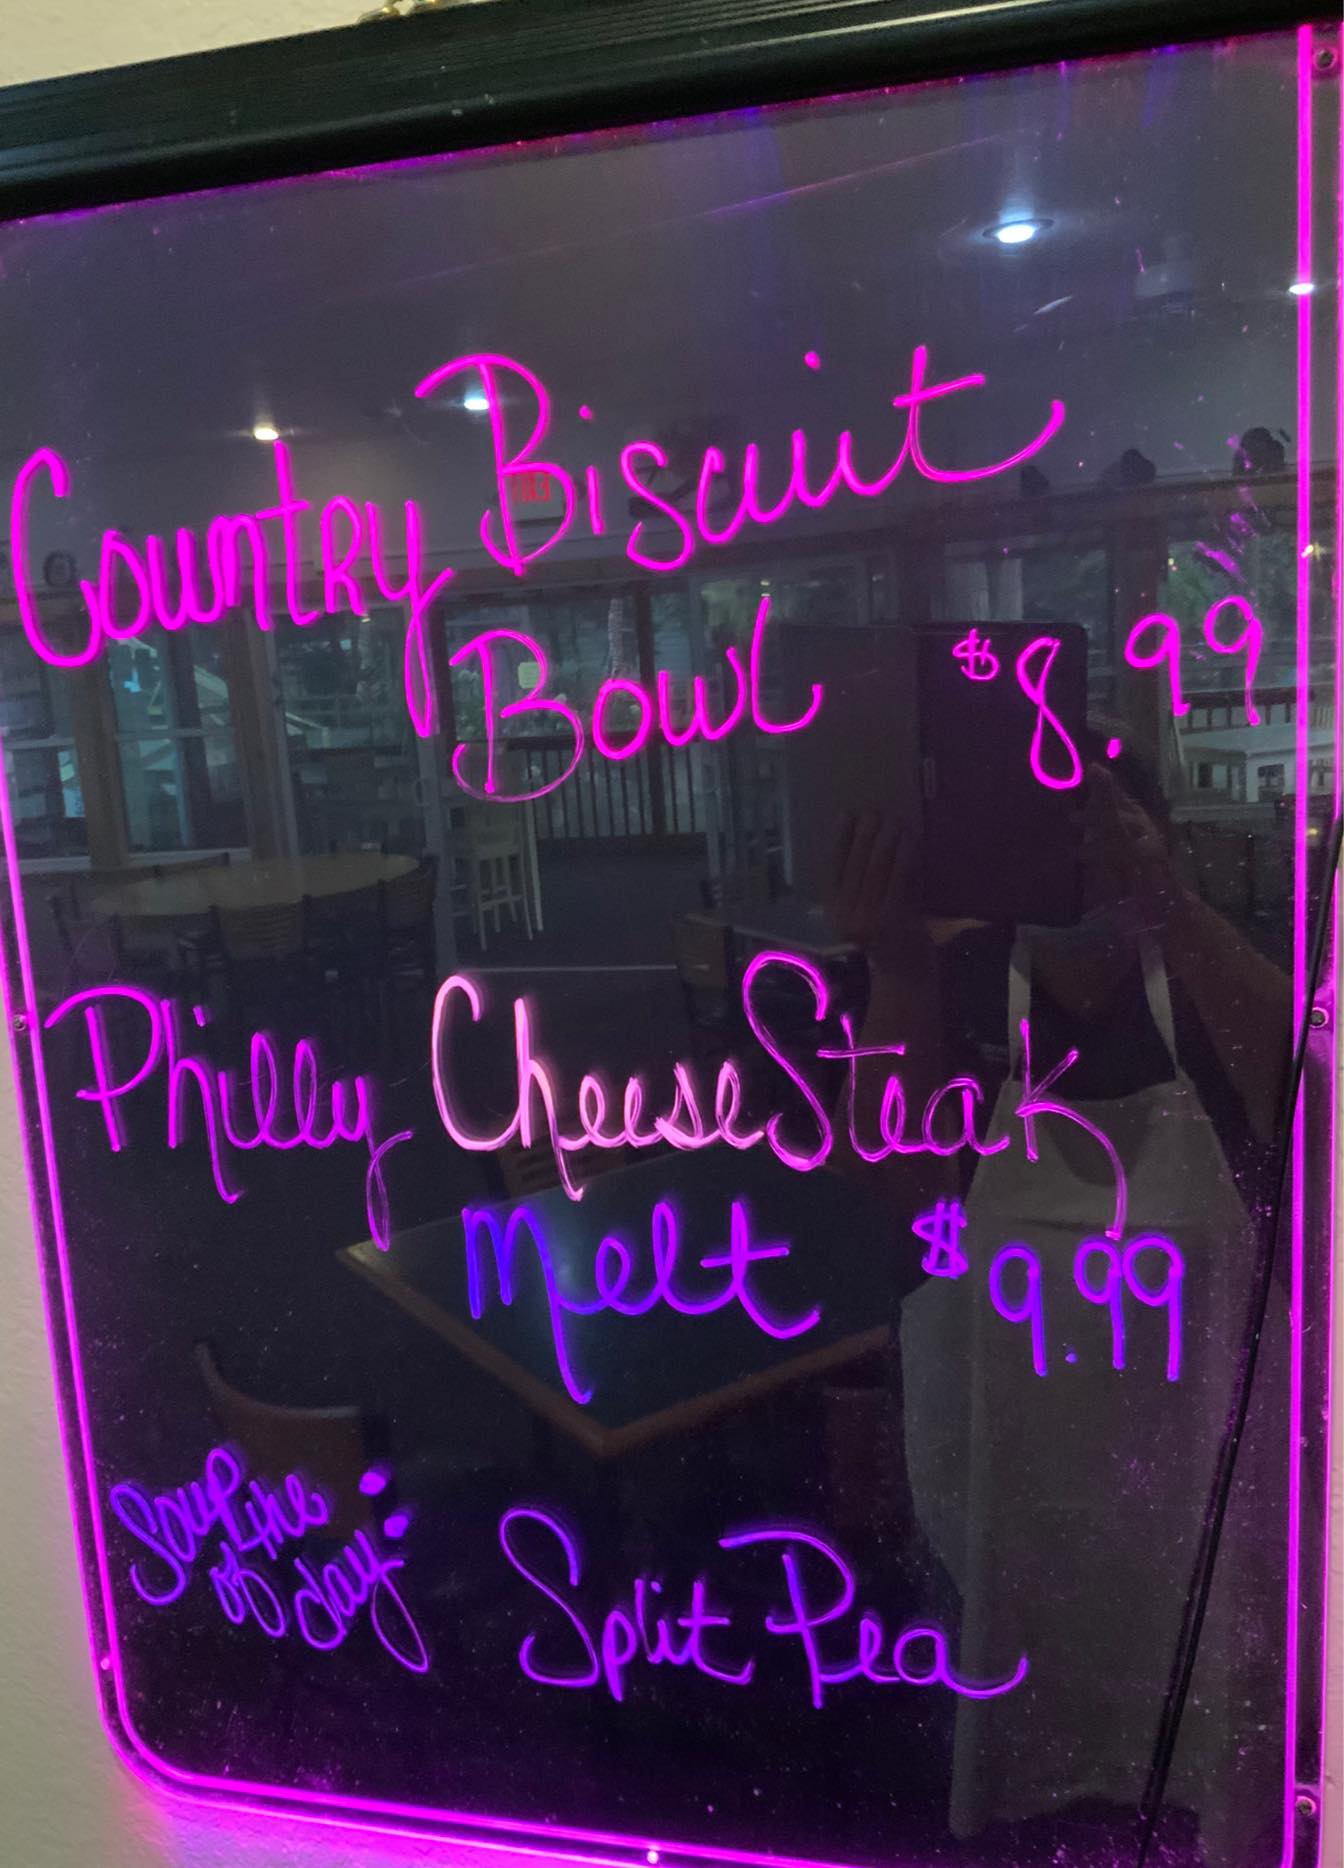 Country Biscuit
Bowl $8.99
Philly CheeseSteak
Melt $9.99
Soup of the day: Split Pea
EXIT